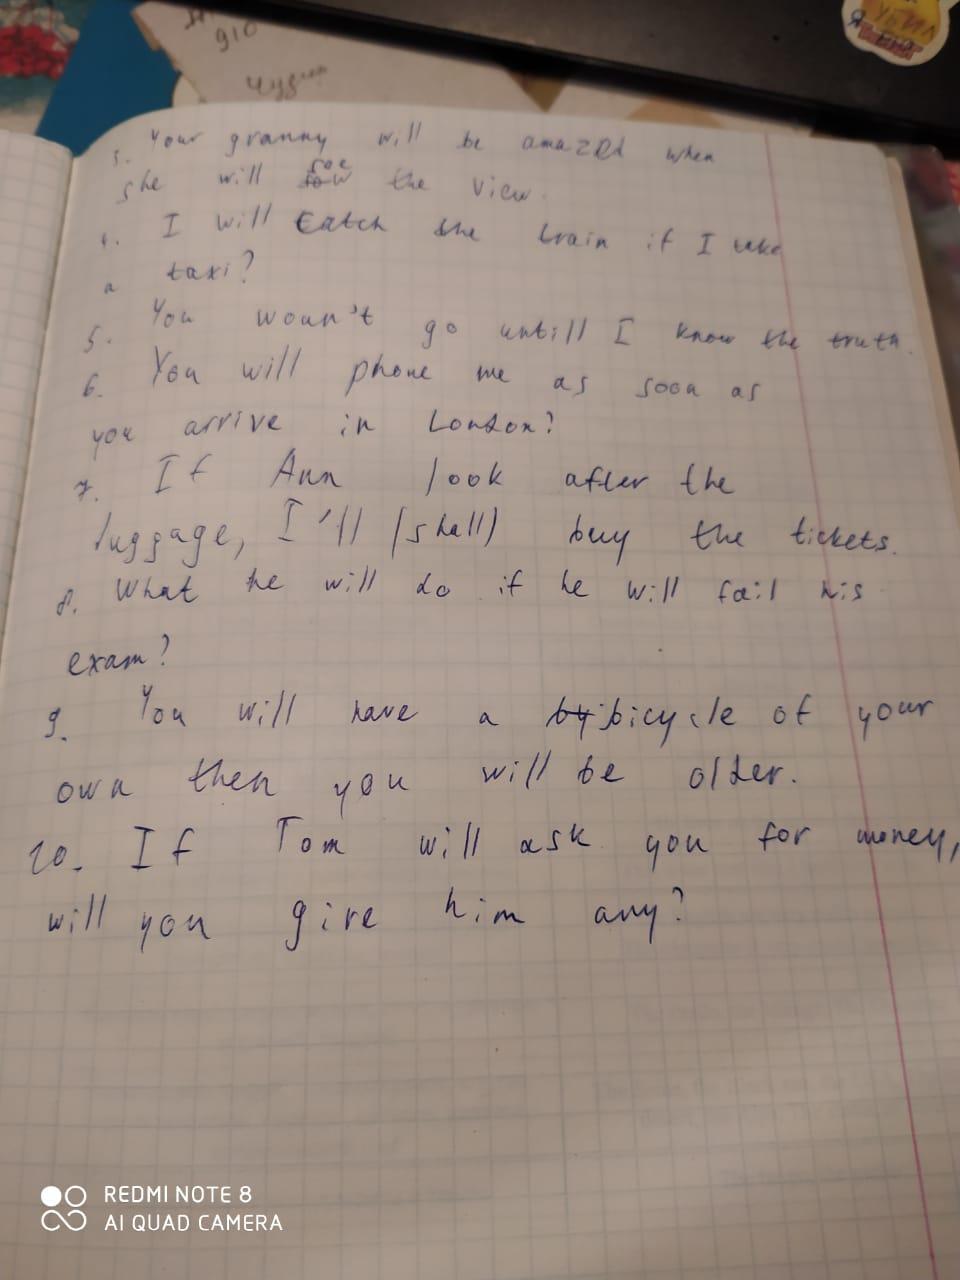 910
чудил
3. Your granny will be amazed when
she will sow see the view.
4. I will catch the train if I take
a taxi?
5. You woun't go untill I know the truth.
6. You will phone me as soon as
you arrive in London?
7. If Ann look after the
luggage, I'll (shall) buy the tickets.
8. What he will do if he will fail his
exam?
9. You will have a by bicycle of your
own then you will be older.
10. If Tom will ask you for money,
will you give him any?
REDMI NOTE 8
AI QUAD CAMERA